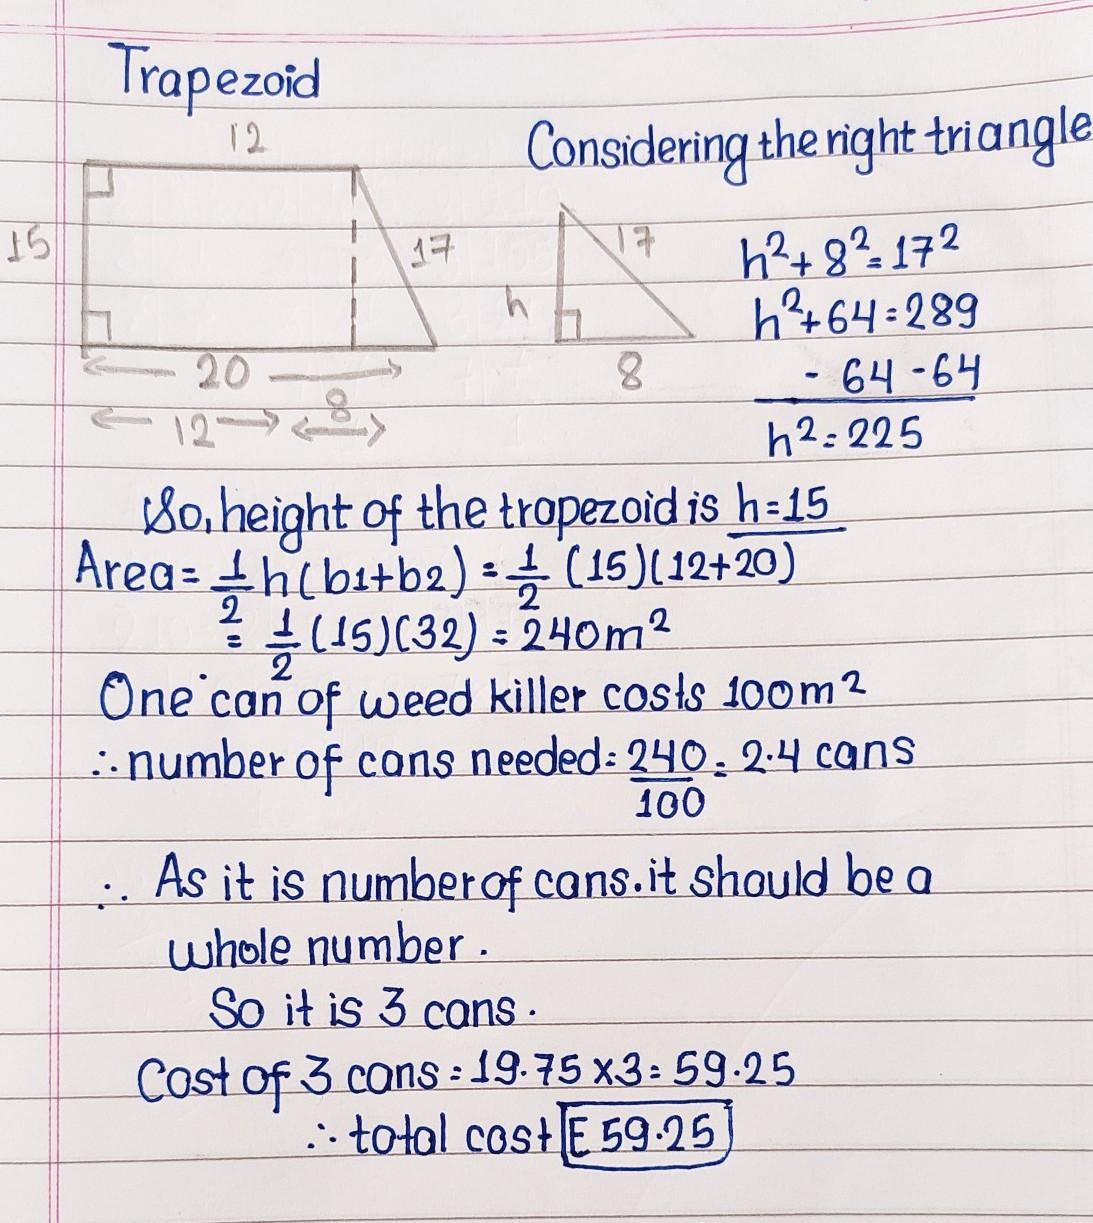 Trapezoid
12
Considering the right triangle
15
17
20
12
8
h
17
8
h²+ 8²=17²
h²+64=289
- 64 -64
h²=225
So, height of the trapezoid is h=15
Area= 1/2 h(b1+b2) = 1/2 (15)(12+20)
= 1/2 (15)(32) = 240m²
One can of weed killer costs 100m²
∴ number of cans needed= 240/100 = 2.4 cans
∴ As it is number of cans. it should be a
whole number.
So it is 3 cans.
Cost of 3 cans = 19.75 x3= 59.25
∴ total cost E 59.25